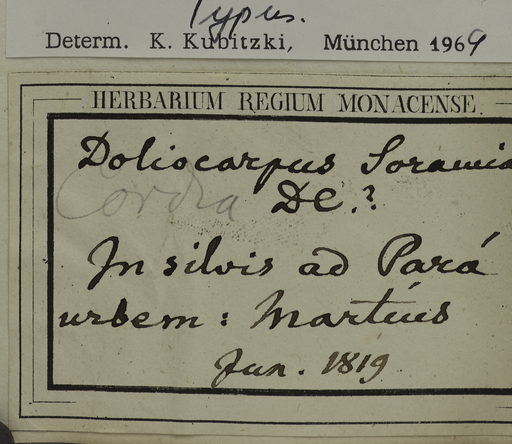 Typus.
Determ. K. Kubitzki, München 1969
HERBARIUM REGIUM MONACENSE.
Doliocarpus Soramia
Cordia DC.?
In silvis ad Pará
urbem: Martius
Jun. 1819